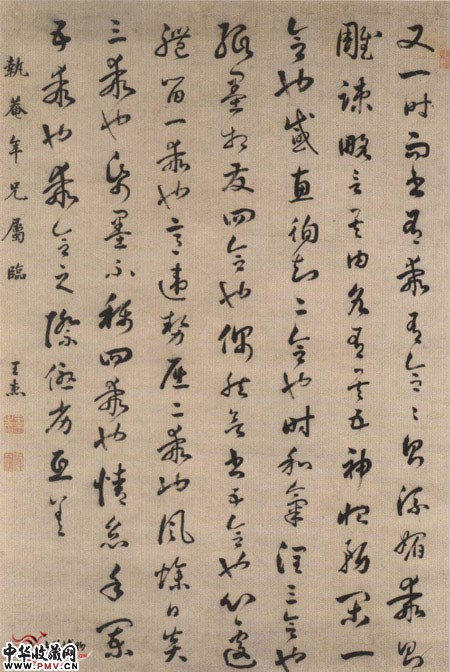 又一時而書有乖有合〻則流媚乖則
雕疎略言其由各有其五神怡務閑一
合也感惠徇知二合也時和氣潤三合也
紙墨相發四合也偶然欲書五合也心遽
體留一乖也意違勢屈二乖也風燥日炎
三乖也紙墨不稱四乖也情怠手闌
五乖也乖合之際優劣互差
執菴年兄屬臨 王杰
中华收藏网
WWW.PMV.CN